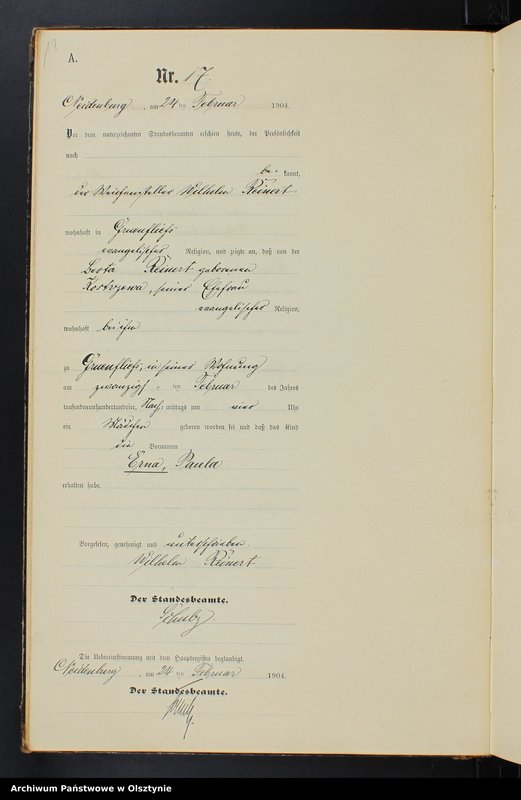 A.
Nr. 17.
Neidenburg, am 24 ten Februar 1904.
Vor dem unterzeichneten Standesbeamten erschien heute, der Persönlichkeit
nach
be- kannt,
der Weichensteller Wilhelm Reinert
wohnhaft in Gruenfließ
evangelischer Religion, und zeigte an, daß von der
Berta Reinert geborenen
Kostrzewa, seiner Ehefrau
evangelischer Religion,
wohnhaft bei ihm
zu Gruenfließ, in seiner Wohnung
am zwanzigsten Februar des Jahres
tausendneunhundertundvier, Nachmittags um vier Uhr
ein Mädchen geboren worden sei und daß das Kind
die Vornamen
Erna, Paula
erhalten habe.
Vorgelesen, genehmigt und unterschrieben.
Wilhelm Reinert
Der Standesbeamte.
Die Uebereinstimmung mit dem Hauptregister beglaubigt.
Neidenburg, am 24 ten Februar 1904.
Der Standesbeamte.
Archiwum Państwowe w Olsztynie